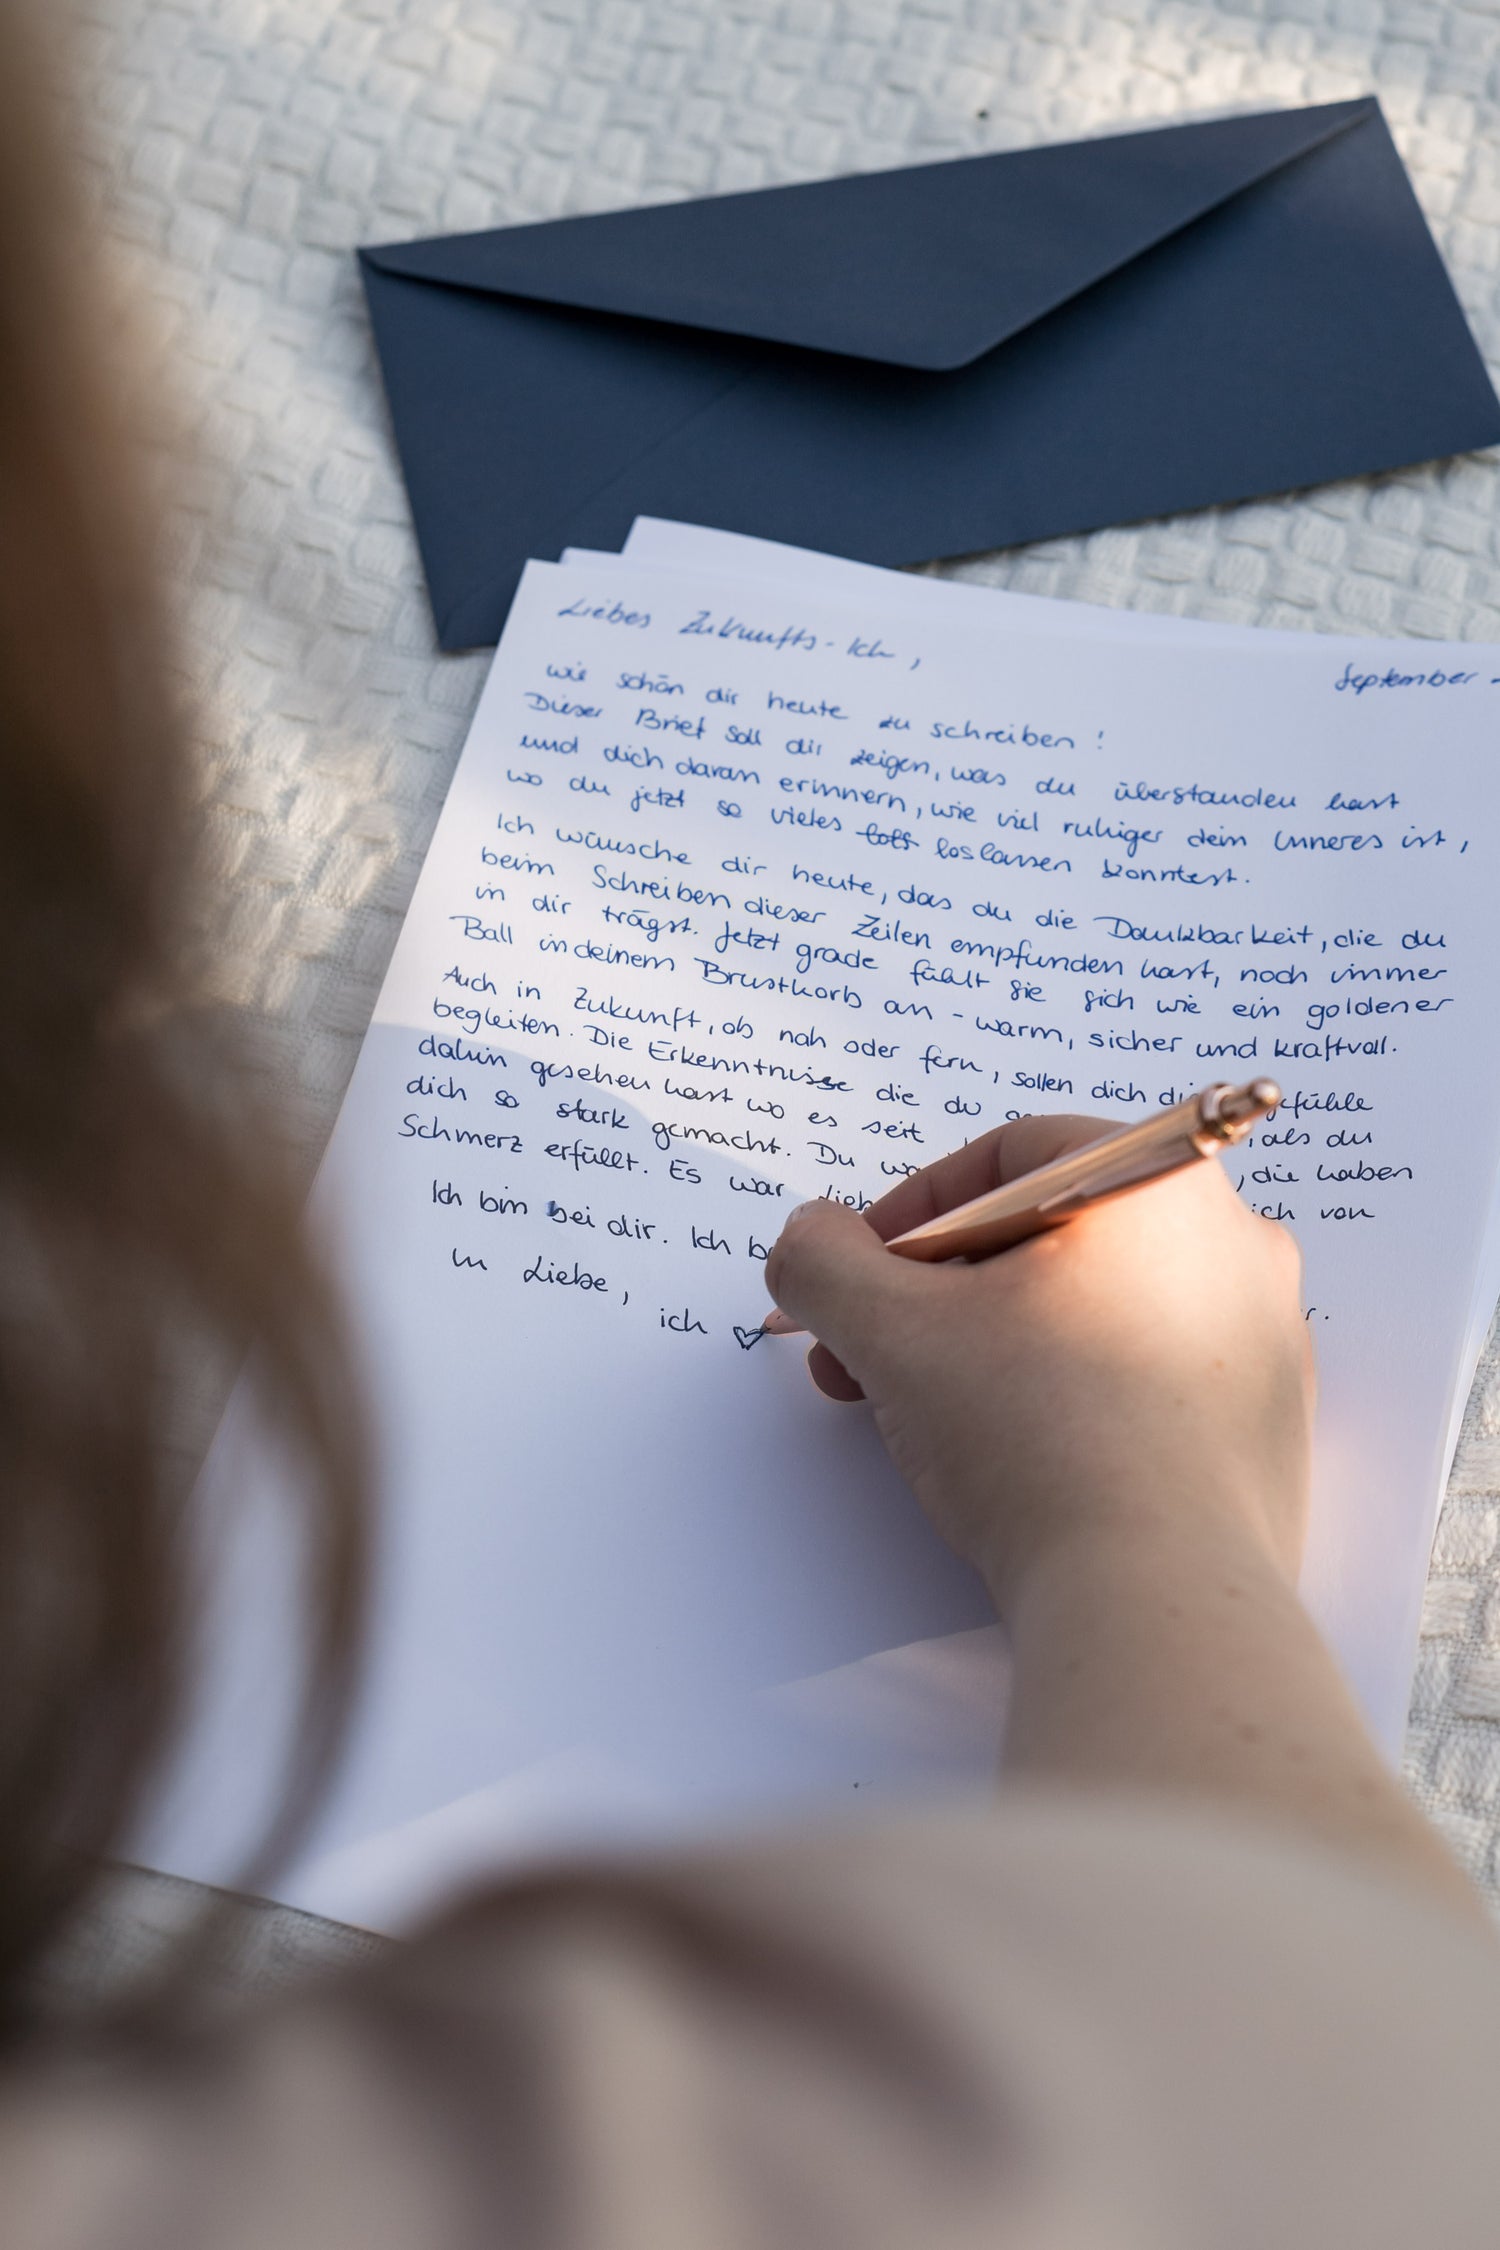 Liebes Zukunfts-Ich,
September
wie schön dir heute zu schreiben!
Dieser Brief soll dir zeigen, was du überstanden hast
und dich daran erinnern, wie viel ruhiger dein Inneres ist,
wo du jetzt so vieles loslassen konntest.
Ich wünsche dir heute, das du die Dankbarkeit, die du
beim Schreiben dieser Zeilen empfunden hast, noch immer
in dir trägst. Jetzt grade fühlt sie sich wie ein goldener
Ball in deinem Brustkorb an - warm, sicher und kraftvoll.
Auch in Zukunft, ob nah oder fern, sollen dich gefühle
begleiten. Die Erkenntnisse die du , als du
dahin gesehen hast wo es seit , die haben
dich so stark gemacht. Du ich von
Schmerz erfüllt. Es war
Ich bin bei dir. Ich
In Liebe,
ich ♡